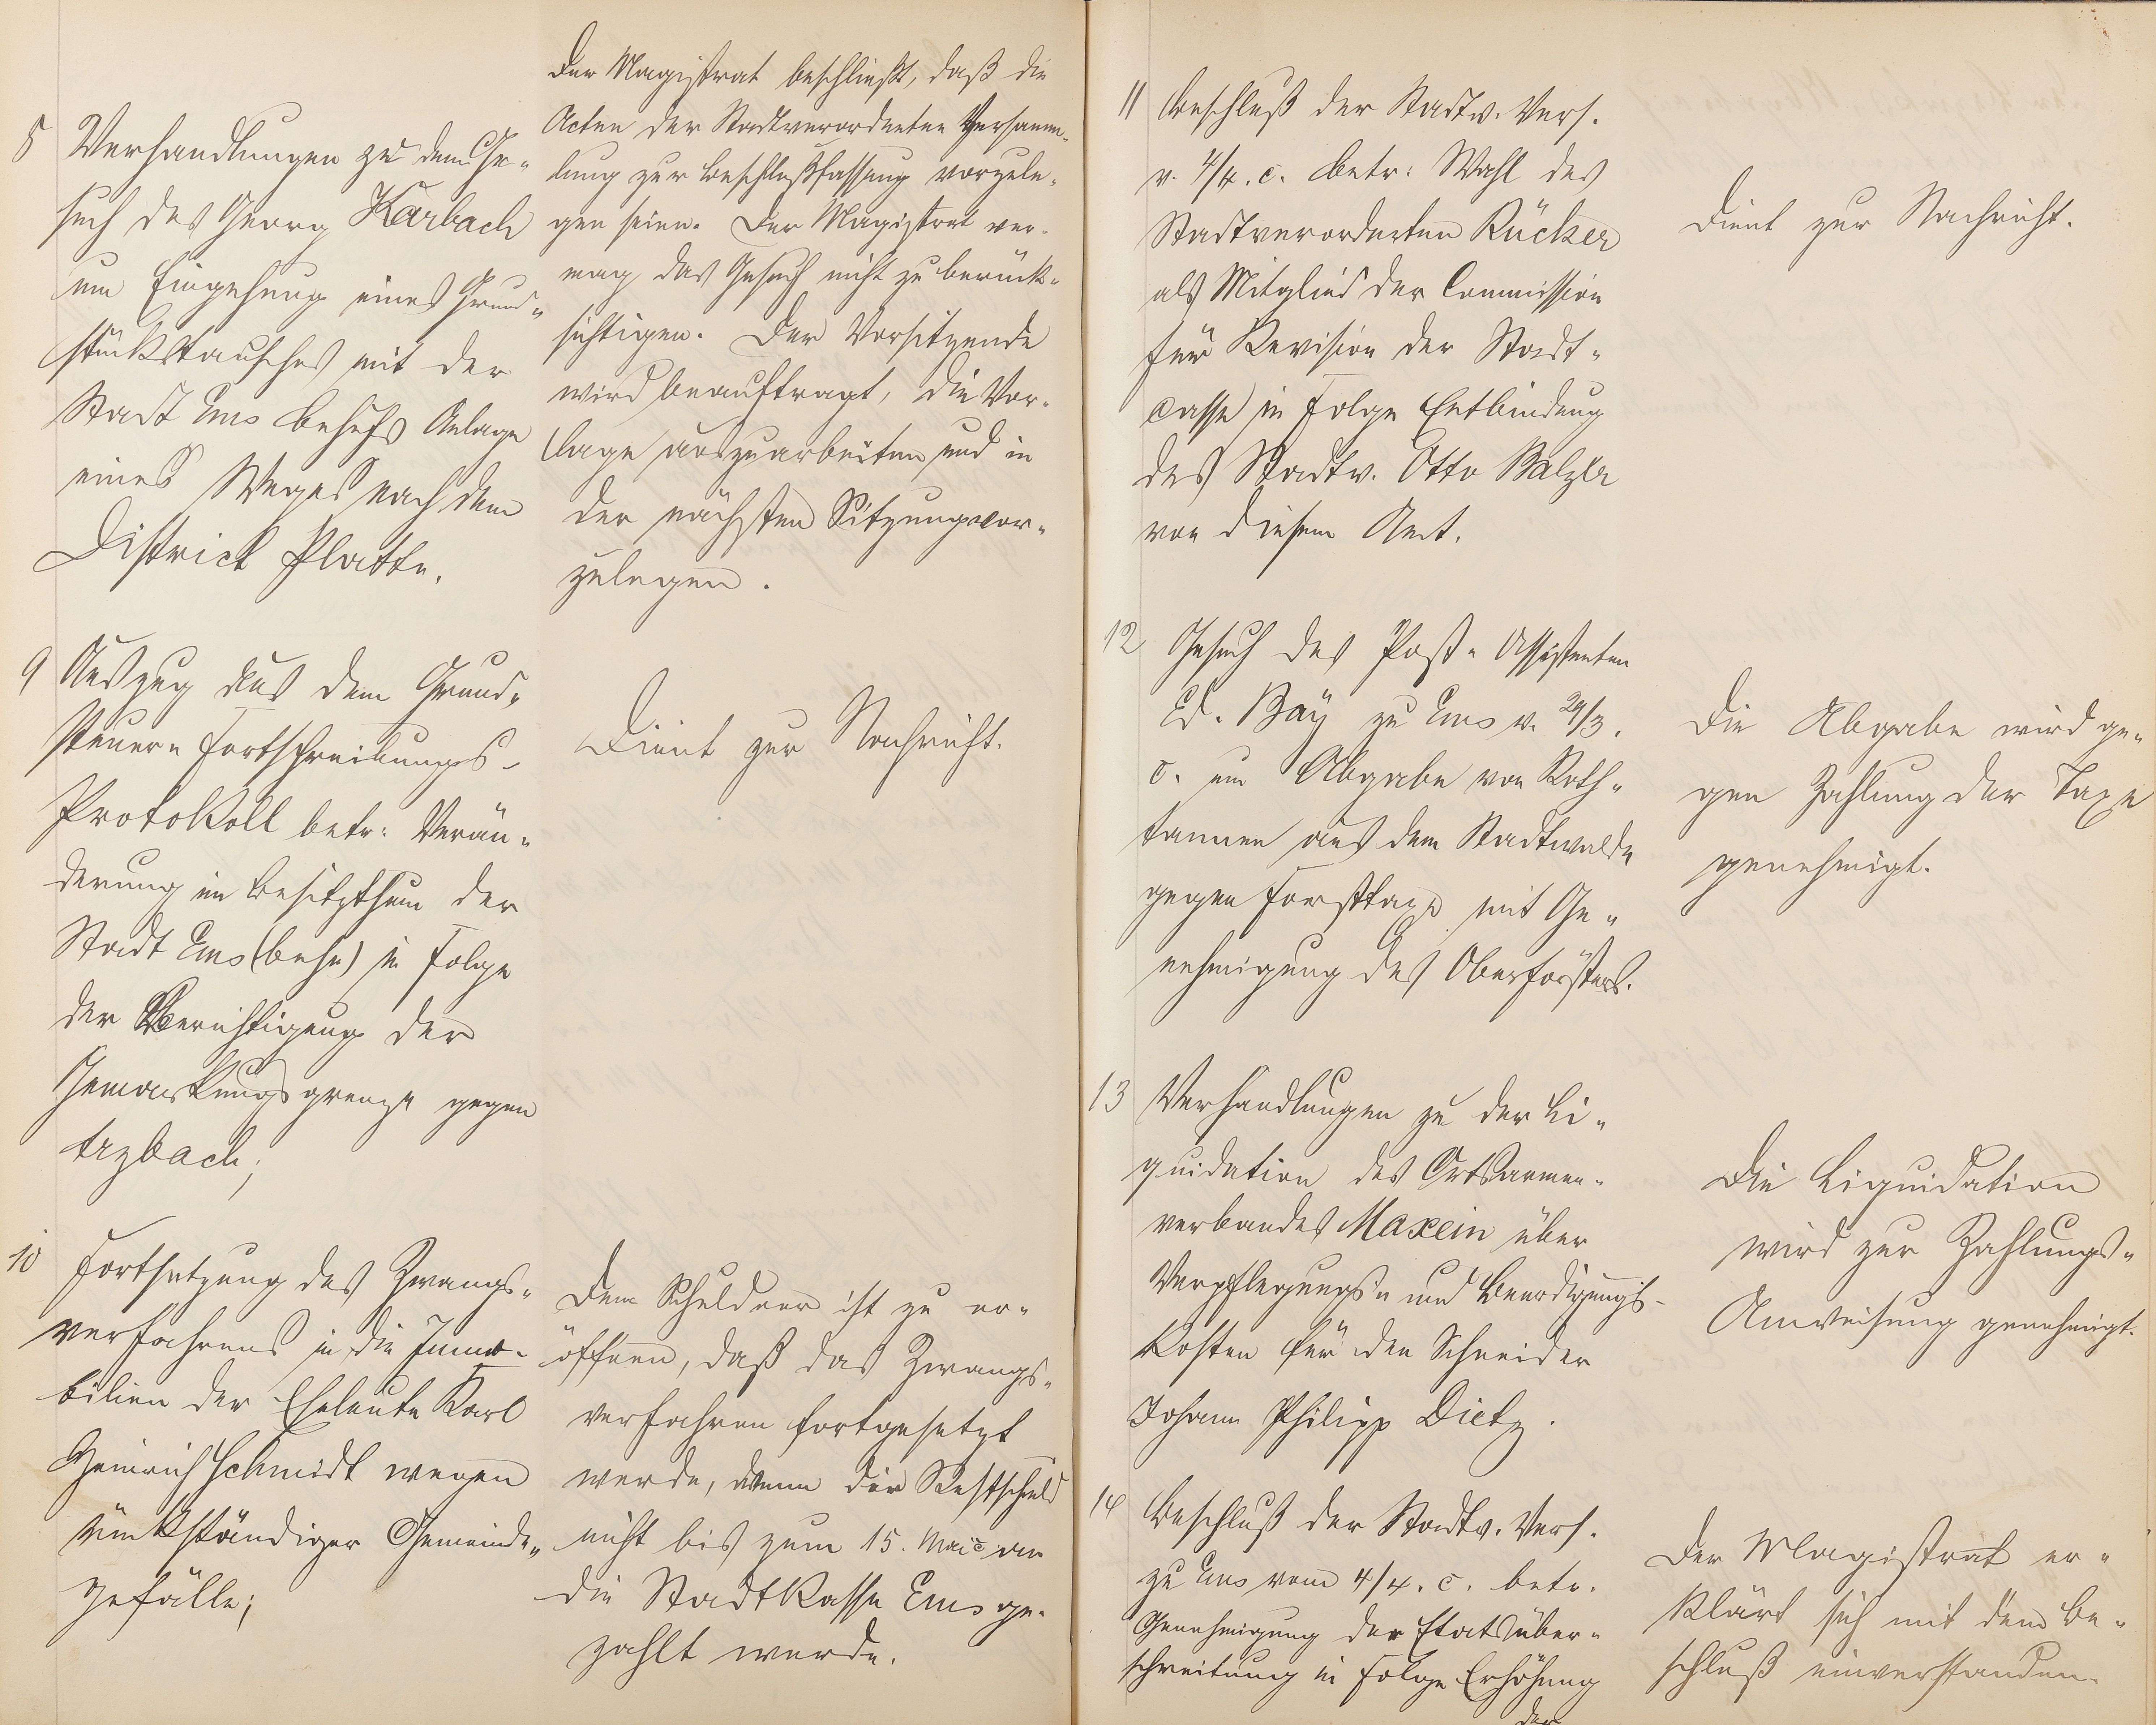 8 Verhandlungen zu dem Ge-
such des Georg Karbach
um Eingehung eines Grund-
stückstausches mit der
Stadt Ems behufs Anlage
eines Weges nach dem
District Platte.
Der Magistrat beschließt, daß die
Acten der Stadtverordneten Versamm-
lung zur Beschlußfassung vorzule-
gen seien. Der Magistrat ver-
mag das Gesuch nicht zu berück-
sichtigen. Der Vorsitzende
wird beauftragt, die Vor-
lage auszuarbeiten und in
der nächsten Sitzung vor-
zulegen.
9 Auszug aus dem Grund-
steuer-Fortschreibungs-
Protokoll betr: Verän-
derung im Besitzthum der
Stadt Ems (behe) in Folge
der Berichtigung der
Gemarkungsgrenze gegen
Arzbach;
Dient zur Nachricht.
10 Fortsetzung des Zwangs-
verfahrens in die Immo-
bilien der Eheleute Karl
Heinrich Schmidt wegen
rückständiger Gemeinde-
gefälle;
Dem Schuldner ist zu er-
öffnen, daß das Zwangs-
verfahren fortgesetzt
werde, wenn die Restschuld
nicht bis zum 15. Mai c an
die Stadtkasse Ems ge-
zahlt werde.
11 Beschluß der Stadtv. Vers.
v. 4/4. c. betr: Wahl des
Stadtverordneten Rücker
als Mitglied der Commission
für Revision der Stadt-
casse in Folge Entbindung
des Stadtv. Otto Balzer
von diesem Amt.
Dient zur Nachricht.
12 Gesuch des Post-Assistenten
Ed. Bay zu Ems v. 29/3.
c. um Abgabe von Roth-
tannen aus dem Stadtwalde
gegen Forsttaxe mit Ge-
nehmigung des Oberförsters.
Die Abgabe wird ge-
gen Zahlung der Taxe
genehmigt.
13 Verhandlungen zu der Li-
quidation des Ortsarmen-
verbandes Maxein über
Verpflegungs- und Beerdigungs-
kosten für den Schneider
Johann Philipp Dietz.
Die Liquidation
wird zur Zahlungs-
Anweisung genehmigt.
14 Beschluß der Stadtv. Vers.
zu Ems vom 4/4. c. betr.
Genehmigung der Etatsüber-
schreitung in Folge Erhöhung
der
Der Magistrat er-
klärt sich mit dem Be-
schluß einverstanden.